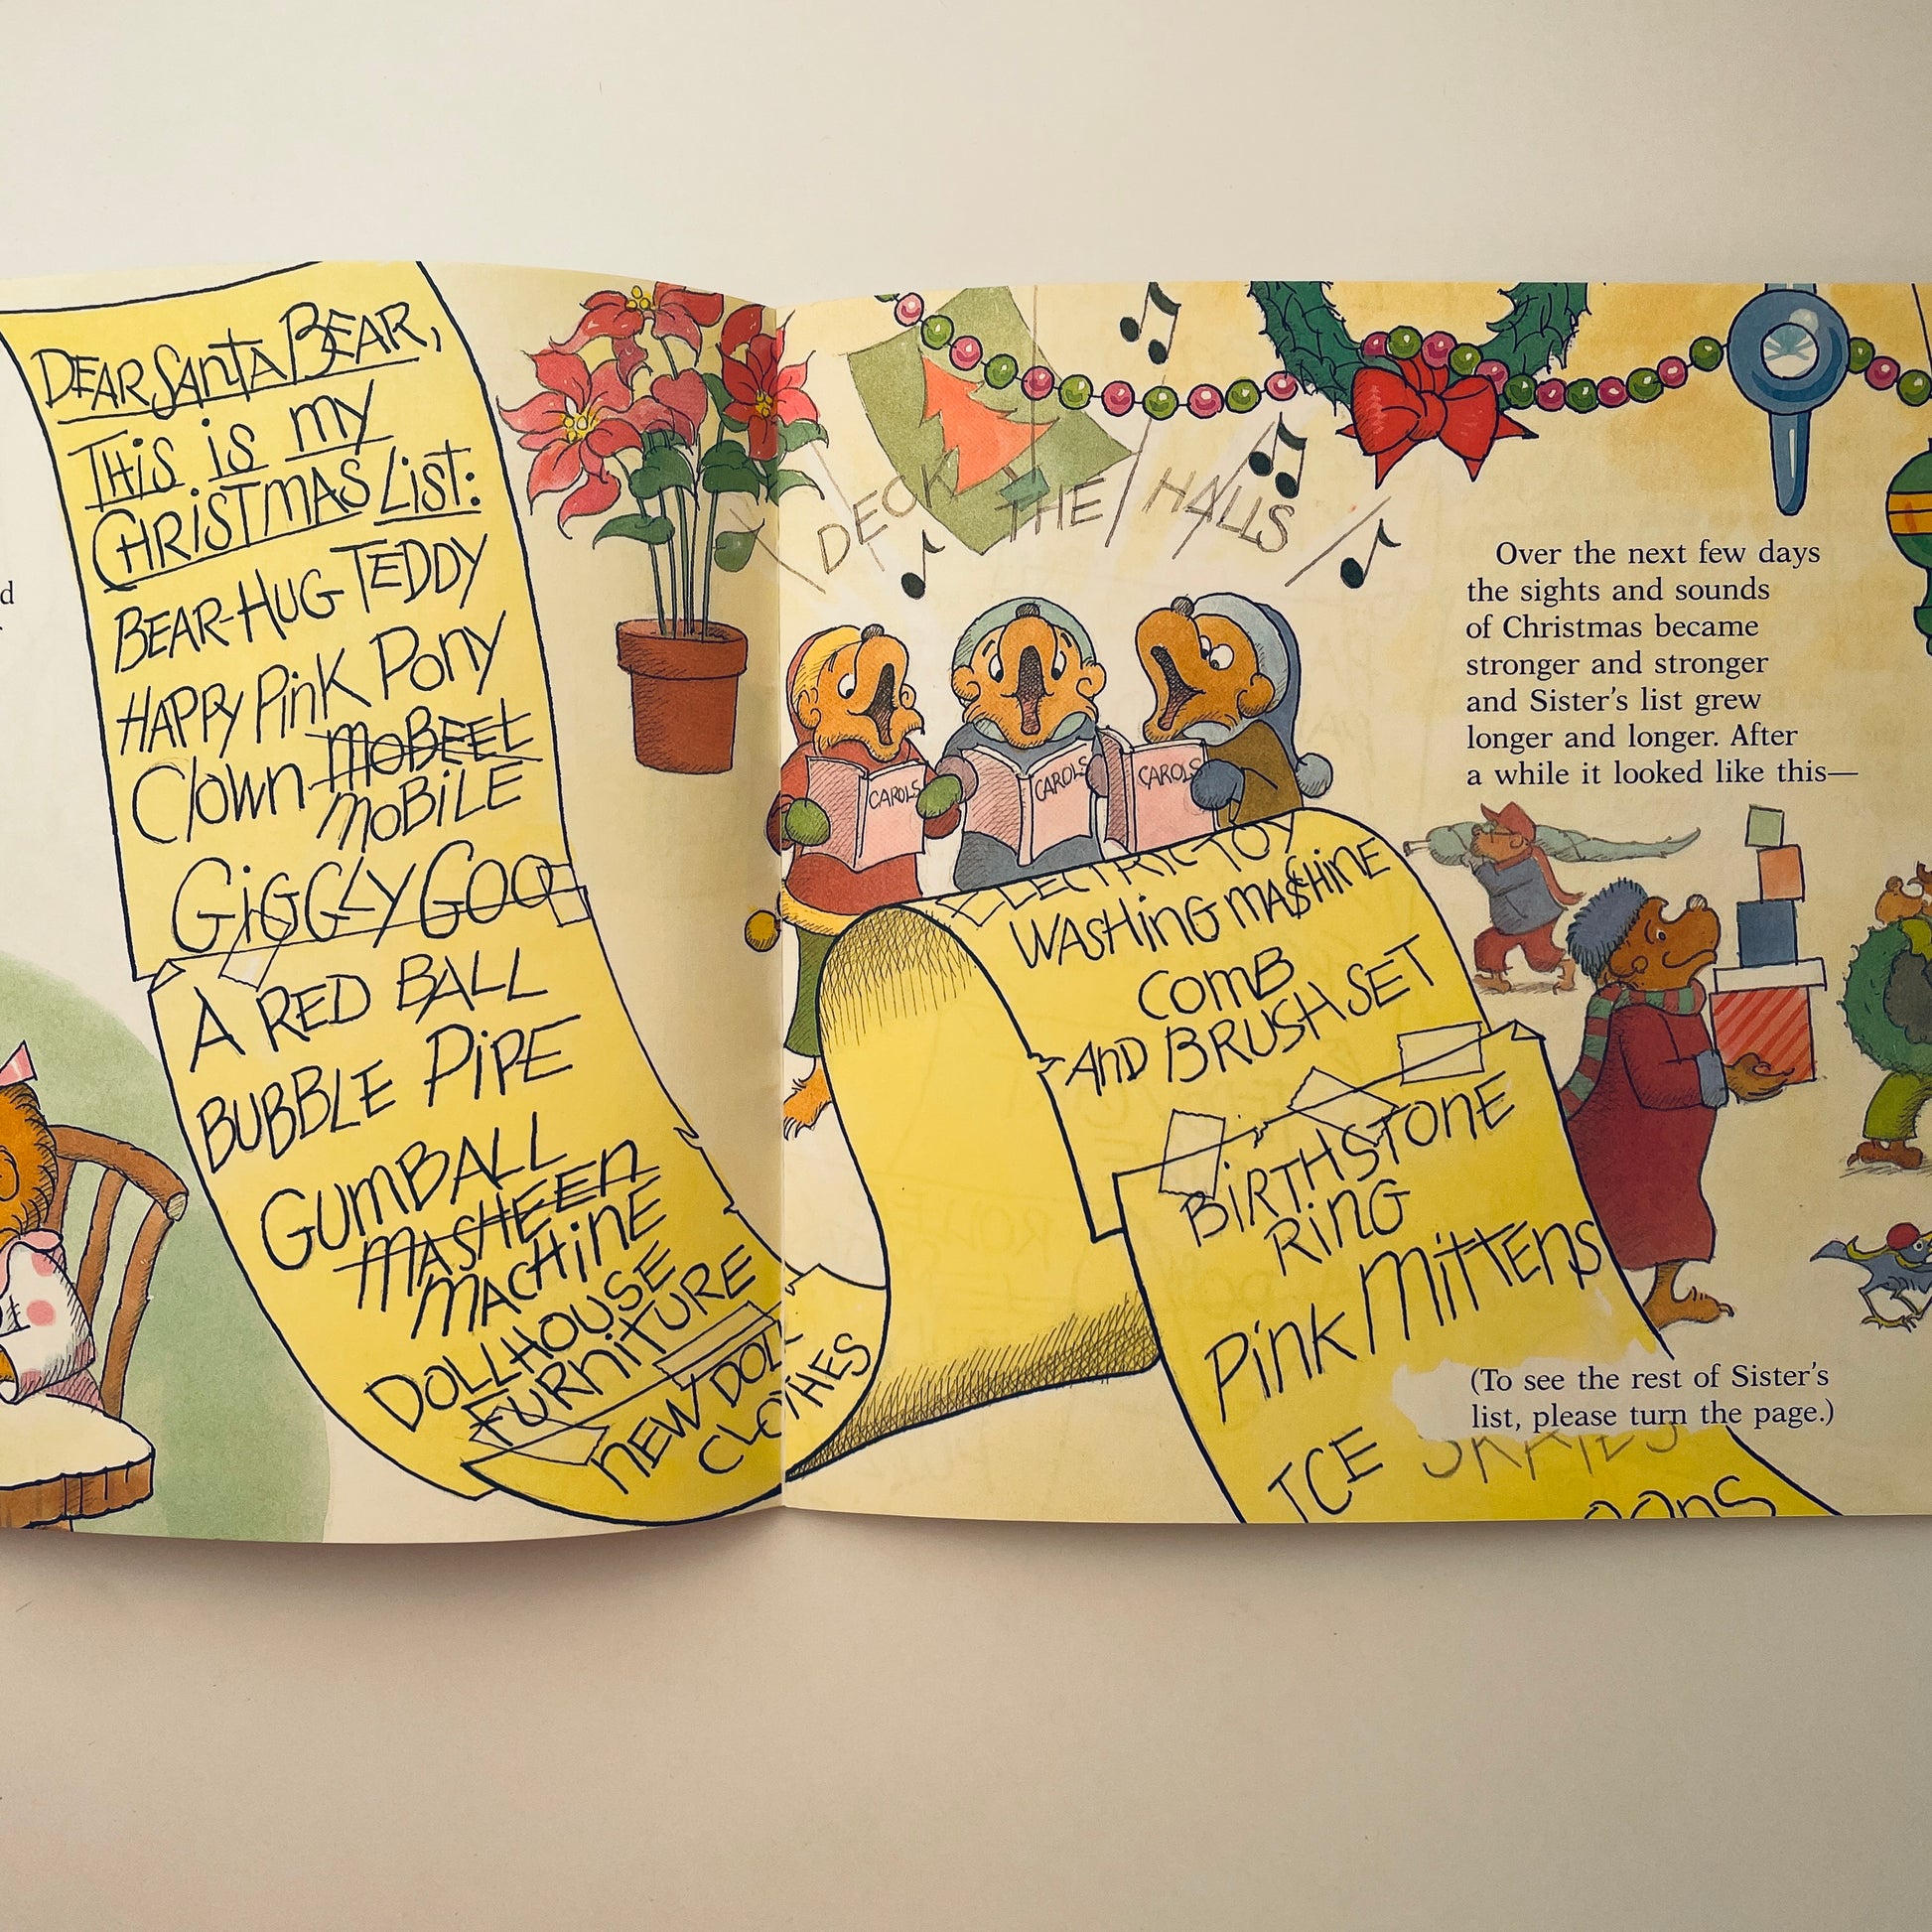 DEAR SANTA BEAR,
THiS iS my
CHRiSTMAS LiST:
BEAR-HUG TEDDY
HAPPY PinK Pony
Clown moBEEL
moBiLE
GiGGLY GOOP
A RED BALL
BUBBLE PiPE
GUmBALL
mASHEEn
mACHinE
DOLLHOUSE
FURniTURE
nEW DOLL
CLOTHES
DECK THE HALLS
CAROLS
CAROLS
CAROLS
ELECTRIC TOY
WASHinG mASHinE
COmB
AnD BRUSH SET
BiRTHSTONE
RinG
PinK MiTTEnS
ICE SKATES
Over the next few days
the sights and sounds
of Christmas became
stronger and stronger
and Sister's list grew
longer and longer. After
a while it looked like this—
(To see the rest of Sister's
list, please turn the page.)